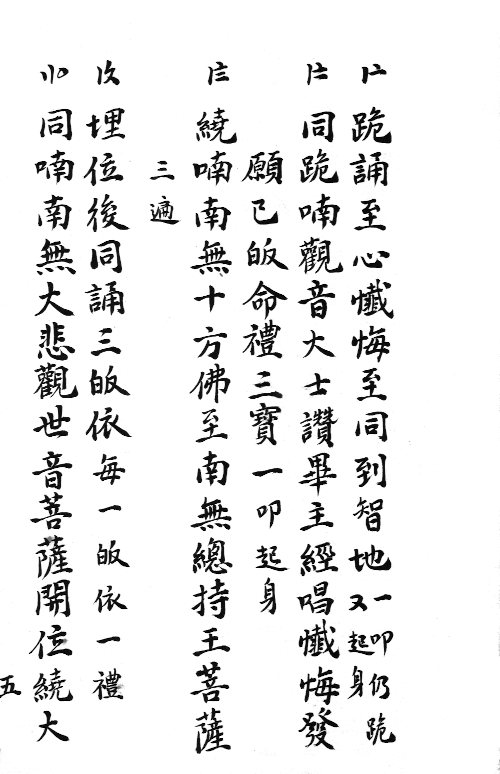 跪誦至心懺悔至同到智地又一叩起身仍跪
同跪喃觀音大士讚畢主經唱懺悔發
願已皈命禮三寶一叩起身
繞喃南無十方佛至南無總持王菩薩
三遍
埋位後同誦三皈依每一皈依一禮
同喃南無大悲觀世音菩薩開位繞大
五